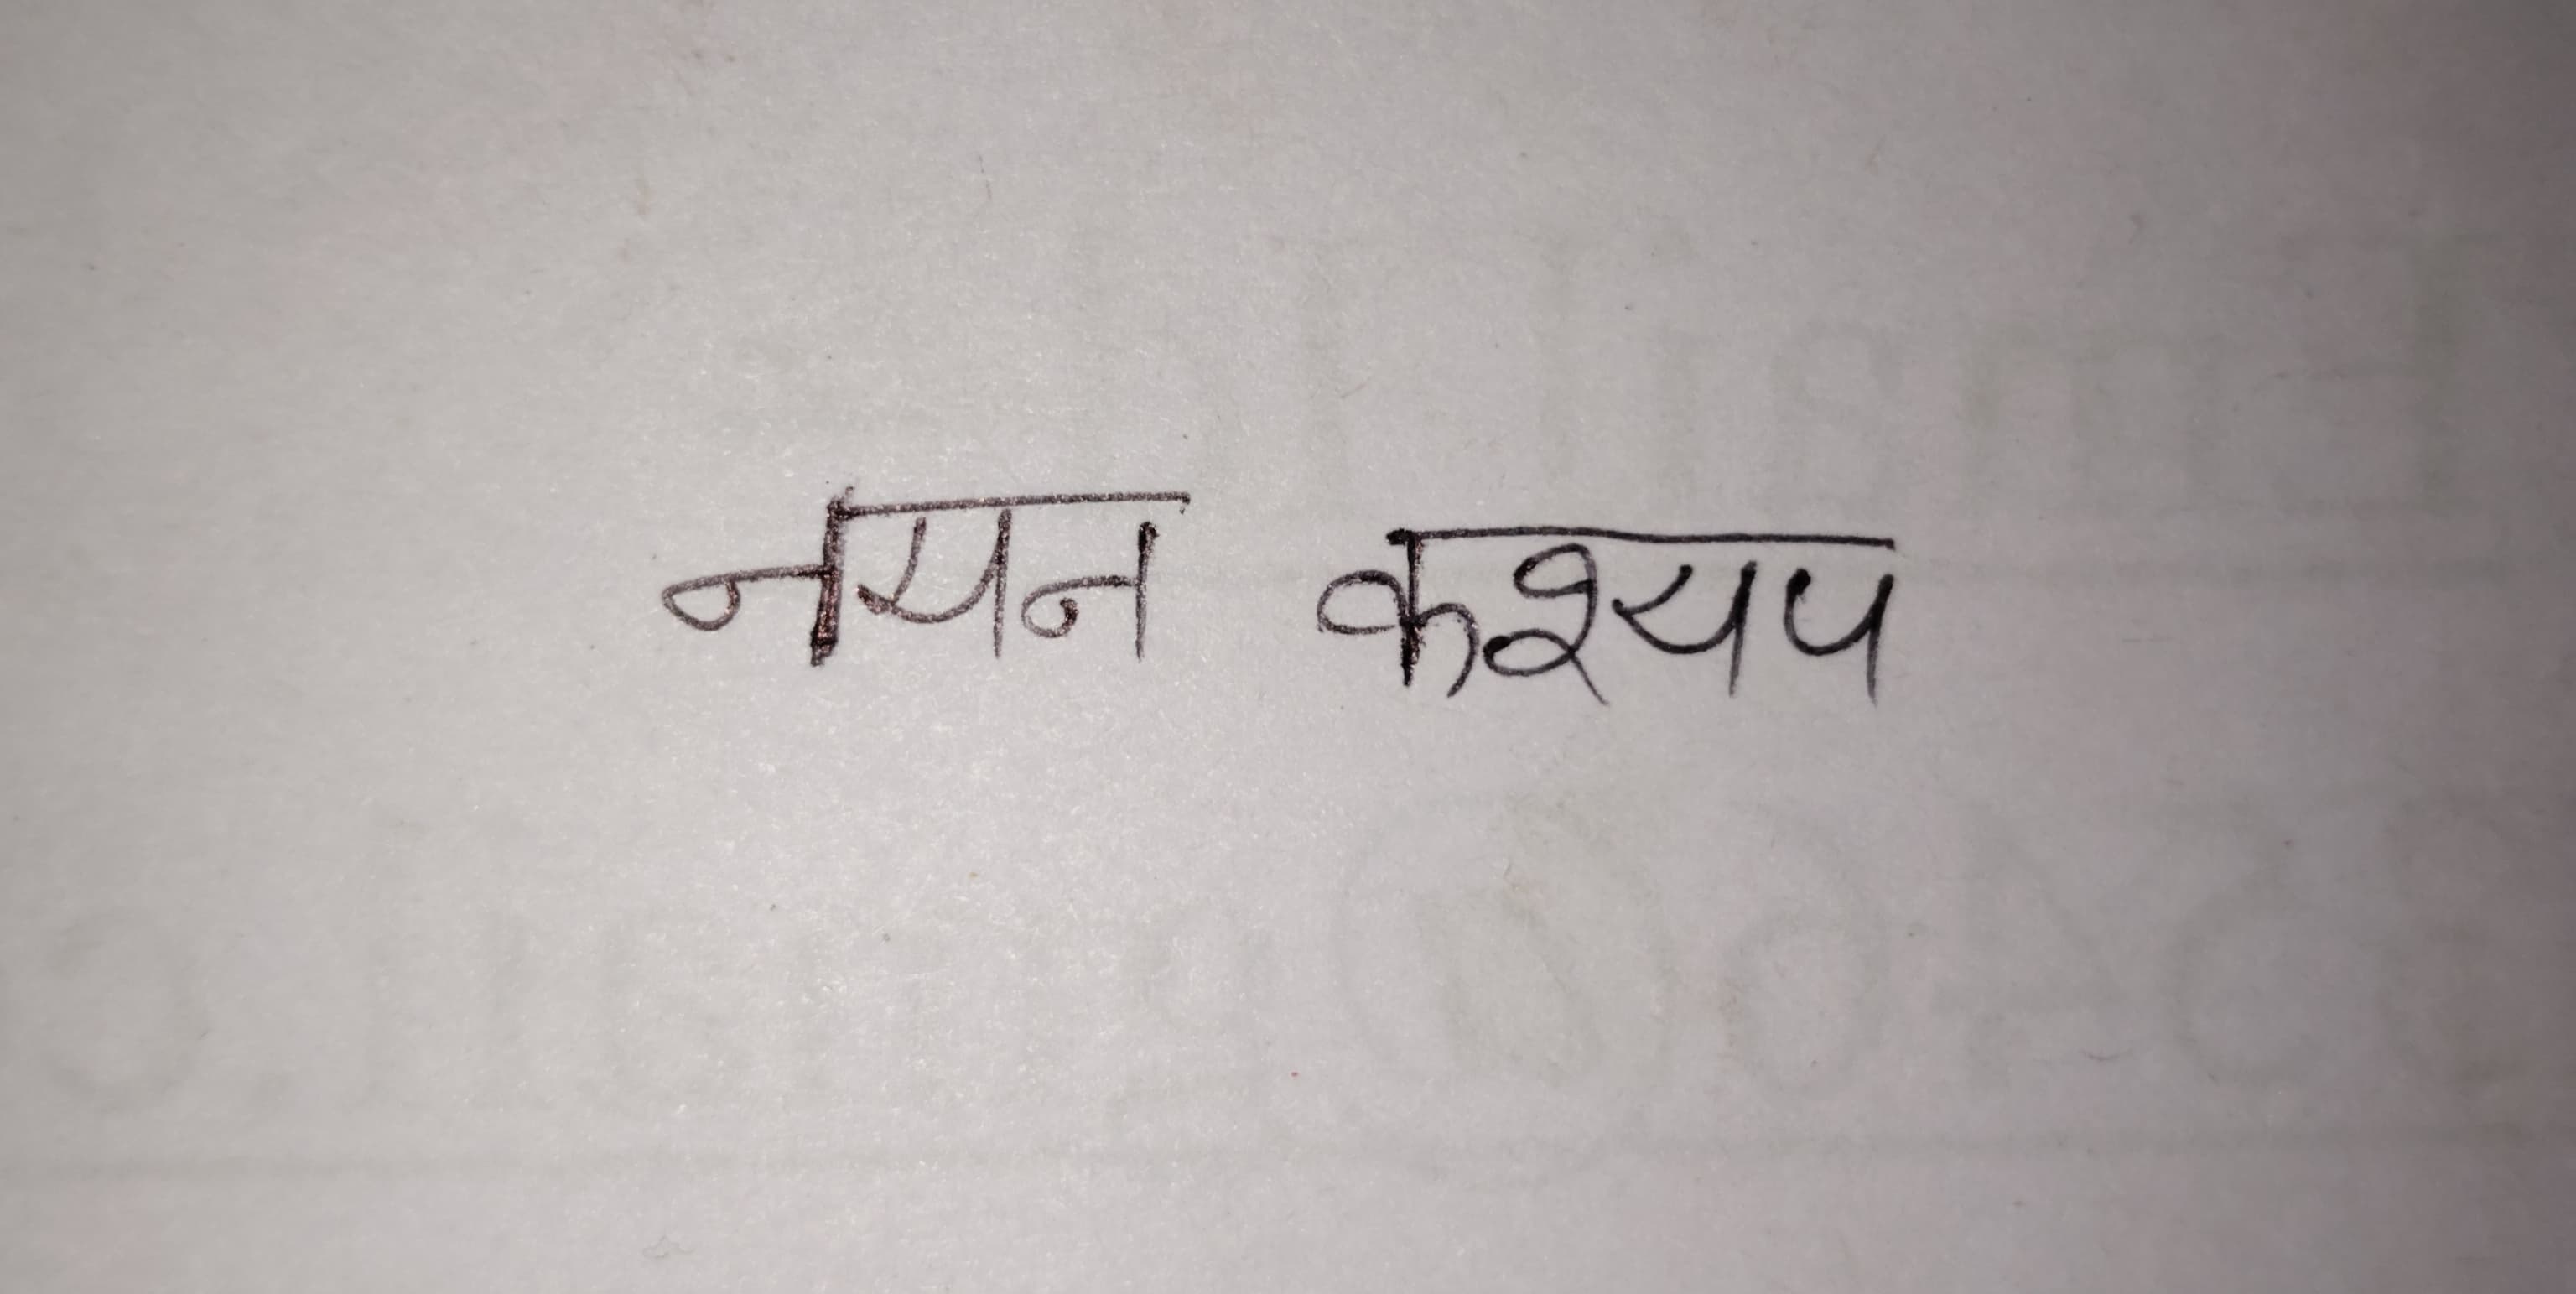 नयन कश्यप